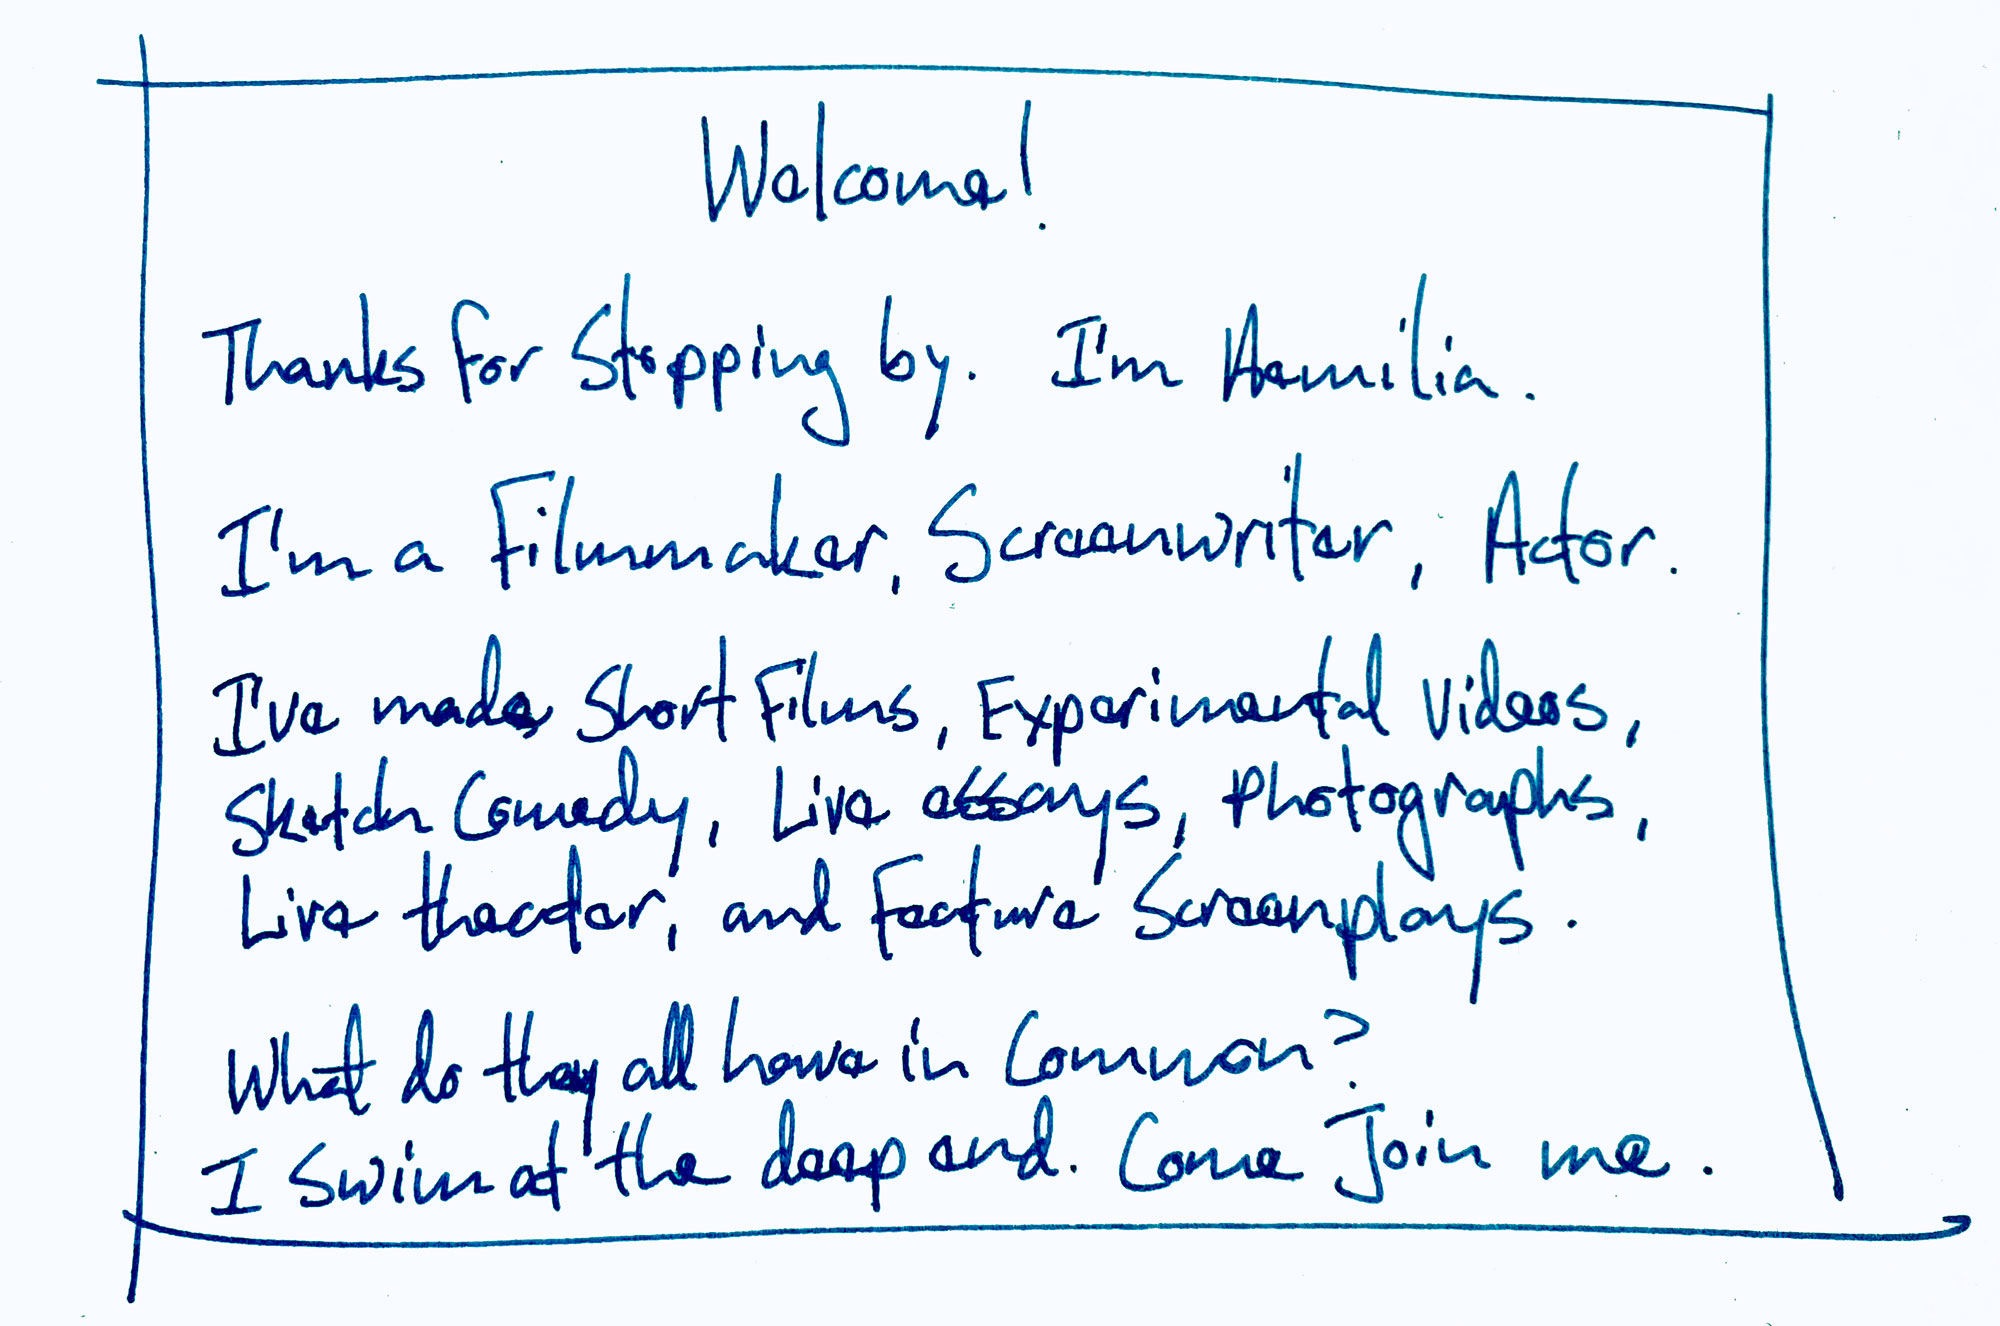 Welcome!
Thanks for Stopping by. I'm Aemilia.
I'm a Filmmaker, Screenwriter, Actor.
I've made Short Films, Experimental Videos,
Sketch Comedy, Live essays, Photographs,
Live theater, and Feature Screenplays.
What do they all have in Common?
I Swim at the deep end. Come Join me.